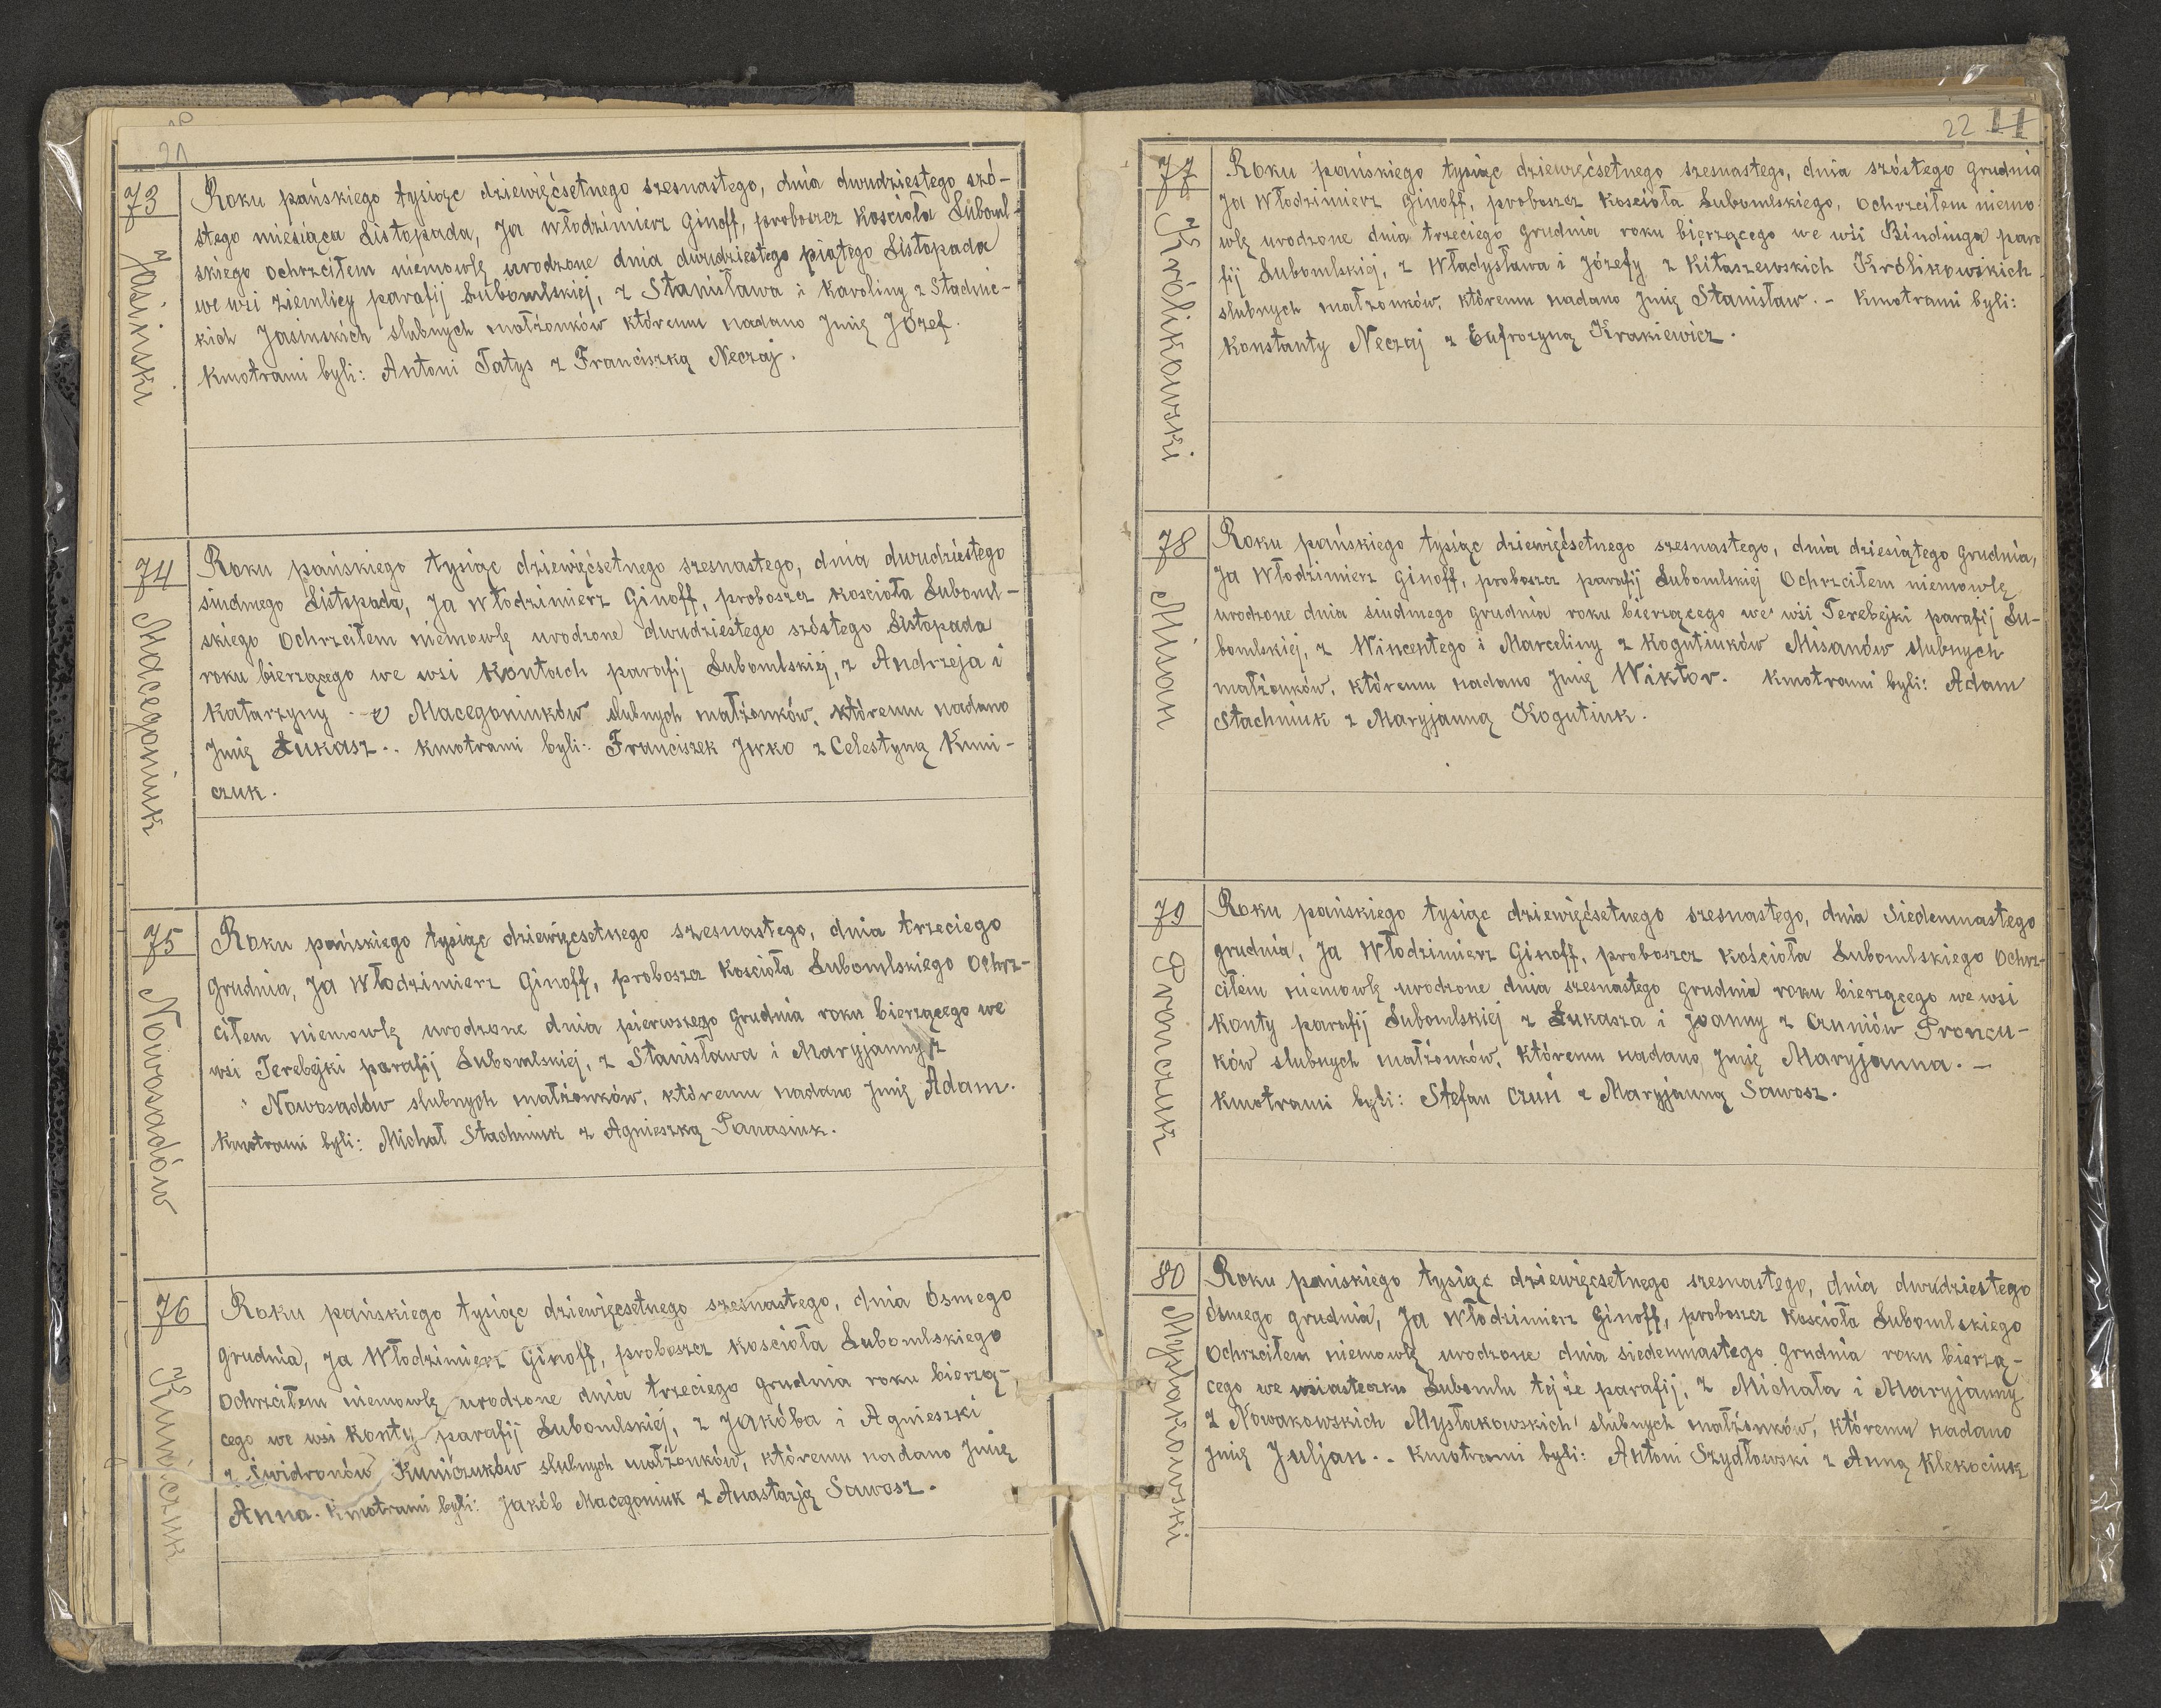 21
73
Jasiński
Roku pańskiego tysiąc dziewięćsetnego szesnastego, dnia dwudziestego szó-
stego miesiąca Listopada, Ja Włodzimierz Ginoff, proboszcz Kościoła Luboml-
skiego ochrzciłem niemowlę urodzone dnia dwudziestego piątego Listopada
we wsi Ziemlicy parafij Lubomlskiej, z Stanisława i Karoliny z Stadnic-
kich Jasinskich slubnych małżonków któremu nadano Jmię Józef.
Kmotrami byli: Antoni Tatys z Franciszką Neczaj.
74
Macegoniuk
Roku pańskiego tysiąc dziewięćsetnego szesnastego, dnia dwudziestego
siudmego Listopada, Ja Włodzimierz Ginoff, proboszcz koscioła Luboml-
skiego Ochrzciłem niemowlę urodzone dwudziestego szóstego Listopada
roku bierzącego we wsi Kontach parafij Lubomlskiej, z Andrzeja i
Katarzyny Macegoniuków slubnych małżonków, któremu nadano
Jmię Łukasz. Kmotrami byli: Franciszek Jurko z Celestyną Kuni-
czuk.
75
Nowosadów
Roku pańskiego tysiąc dziewięcsetnego szesnastego, dnia trzeciego
Grudnia, Ja Włodzimierz Ginoff, proboszcz Kościoła Lubomlskiego Ochrz-
ciłem niemowlę urodzone dnia pierwszego Grudnia roku bierzącego we
wsi Terebejki parafij Lubomlskiej, z Stanisława i Maryjanny z
Nowosadów slubnych małżonków, któremu nadano Jmię Adam.
Kmotrami byli: Michał Stachniuk z Agnieszką Panasiuk.
76
Kuniczuk
Roku pańskiego tysiąc dziewięcsetnego szesnastego, dnia Ósmego
Grudnia, Ja Włodzimierz Ginoff, proboszcz kościoła Lubomlskiego
Ochrzciłem niemowlę urodzone dnia trzeciego grudnia roku bierzą-
cego we wsi Konty parafij Lubomlskiej, z Jakóba i Agnieszki
z Świdronów Kuniczuków slubnych małżonków, któremu nadano Jmię
Anna. Kmotrami byli: Jakób Macegoniuk z Anastazją Sawosz.
22 11
77
Królikowski
Roku pańskiego tysiąc dziewięćsetnego szesnastego, dnia szóstego Grudnia
Ja Włodzimierz Ginoff, proboszcz Kościoła Lubomlskiego, Ochrzciłem niemo
wlę urodzone dnia trzeciego Grudnia roku bierzącego we wsi Bindinga para
fij Lubomlskiej, z Władysława i Józefy z Kitaszewskich Królikowskich
slubnych małżonków, któremu nadano Jmię Stanisław. - Kmotrami byli:
Konstanty Neczaj z Eufrozyną Krakiewicz.
78
Misan
Roku pańskiego tysiąc dziewięćsetnego szesnastego, dnia dziesiątego Grudnia,
Ja Włodzimierz Ginoff, proboszcz parafij Lubomlskiej Ochrzciłem niemowlę
urodzone dnia siudmego Grudnia roku bierzącego we wsi Terebejki parafij Lu-
bomlskiej, z Wincentego i Marceliny z Kogutiuków Misanów slubnych
małżonków, któremu nadano Jmię Wiktor. Kmotrami byli: Adam
Stachniuk z Maryjanną Kogutiuk.
79
Pronczuk
Roku pańskiego tysiąc dziewięćsetnego szesnastego, dnia Siedemnastego
grudnia, Ja Włodzimierz Ginoff, proboszcz Kościoła Lubomlskiego Ochrz-
ciłem niemowlę urodzone dnia szesnastego Grudnia roku bierzącego we wsi
Konty parafij Lubomlskiej z Łukasza i Joanny z Czuniów Proncu-
ków slubnych małżonków, któremu nadano Jmię Maryjanna. -
Kmotrami byli: Stefan Czuń z Maryjanną Sawosz.
80
Mysłakowski
Roku pańskiego tysiąc dziewięcsetnego szesnastego, dnia dwudziestego
Ósmego grudnia, Ja Włodzimierz Ginoff, proboszcz Kościoła Lubomlskiego
Ochrzciłem niemowlę urodzone dnia siedemnastego Grudnia roku bierzą-
cego we miasteczku Lubomlu tej że parafij, z Michała i Maryjanny
z Nowakowskich Mysłakowskich slubnych małżonków, któremu nadano
Jmię Juljan. - Kmotrami byli: Antoni Szydłowski z Anną Klekociuk